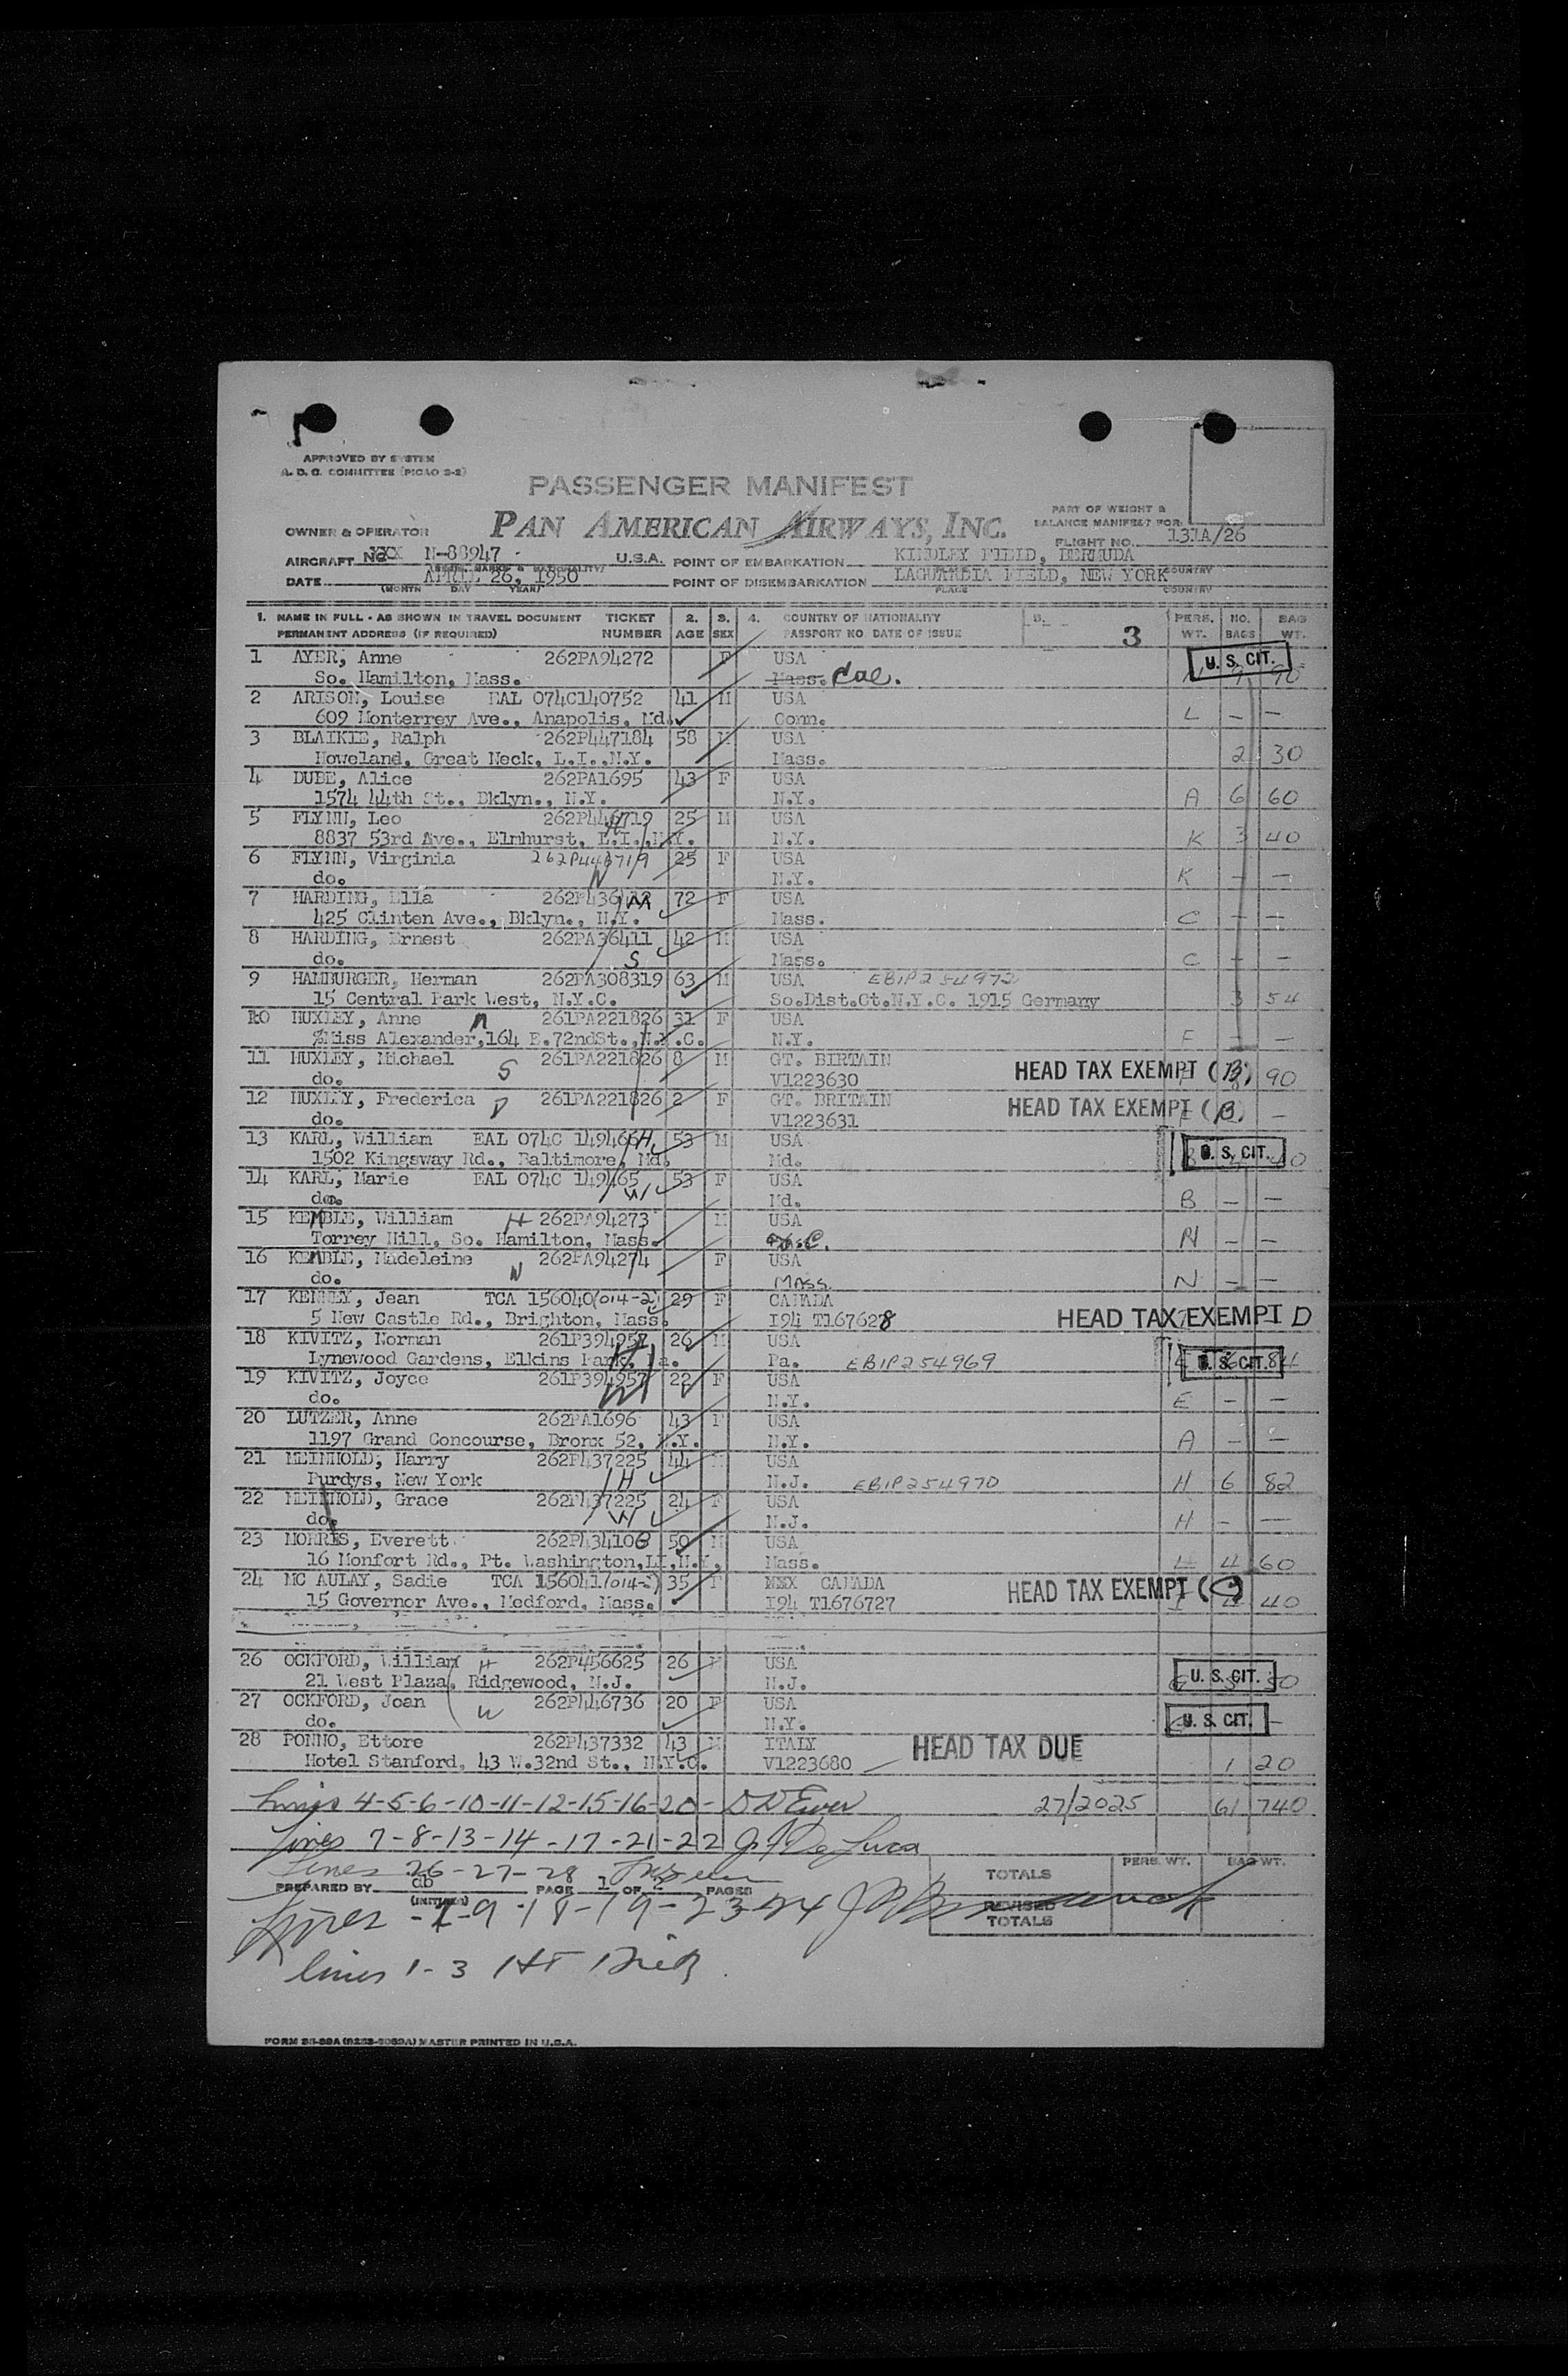 APPROVED BY SYSTEM
A. D. C. COMMITTEE (PICAO S-2)
PASSENGER MANIFEST
PART OF WEIGHT &
BALANCE MANIFEST FOR:
OWNER & OPERATOR PAN AMERICAN AIRWAYS, INC.
FLIGHT NO. 131A/26
AIRCRAFT NO XXX N-88947 U.S.A. POINT OF EMBARKATION KINDLEY FIELD, BERMUDA
DATE APRIL 26, 1950 POINT OF DISEMBARKATION LAGUARDIA FIELD, NEW YORK COUNTRY
(MONTH DAY YEAR) PLACE COUNTRY
1. NAME IN FULL - AS SHOWN IN TRAVEL DOCUMENT TICKET 2. 3. 4. COUNTRY OF NATIONALITY 5. PERS. NO. BAG
PERMANENT ADDRESS (IF REQUIRED) NUMBER AGE SEX PASSPORT NO. DATE OF ISSUE 3 WT. BAGS WT.
1 AYER, Anne 262PA94272 F USA U. S. CIT.
So. Hamilton, Mass. Mass. Cal. 90
2 ARISON, Louise EAL 074C140752 41 M USA
609 Monterrey Ave., Anapolis, Md. Conn. L - -
3 BLAIKIE, Ralph 262P447184 58 M USA
Howeland, Great Neck, L.I.,N.Y. Mass. 2 30
4 DUBE, Alice 262PA1695 43 F USA
1574 44th St., Bklyn., N.Y. N.Y. A 6 60
5 FLYNN, Leo 262P446719 25 M USA
8837 53rd Ave., Elmhurst, L.I.,N.Y. H N.Y. K 3 40
6 FLYNN, Virginia 262P446719 25 F USA
do. W N.Y. K - -
7 HARDING, Ella 72 F USA
425 Clinten Ave., Bklyn., N.Y. M Mass. C - -
8 HARDING, Ernest 262PA36411 42 M USA
do. S Mass. C - -
9 HAMBURGER, Herman 262PA308319 63 M USA EBIP254972
15 Central Park West, N.Y.C. So.Dist.Ct.N.Y.C. 1915 Germany 3 54
10 HUXLEY, Anne M 261PA221826 31 F USA
%Miss Alexander,164 E.72ndSt.,N.Y.C. N.Y. F - -
11 HUXLEY, Michael S 261PA221826 8 M GT. BIRTAIN HEAD TAX EXEMPT (B)
do. V1223630 90
12 HUXLEY, Frederica D 261PA221826 2 F GT. BRITAIN HEAD TAX EXEMPT (B)
do. V1223631 -
13 KARL, William EAL 074C 149466 H 53 M USA U. S. CIT.
1502 Kingsway Rd., Baltimore, Md. Md.
14 KARL, Marie EAL 074C 149465 53 F USA
do. W Md. B - -
15 KEMBLE, William H 262PA94273 M USA
Torrey Hill, So. Hamilton, Mass. N - -
16 KEMBLE, Madeleine W 262PA94274 F USA
do. MASS. N - -
17 KENNEY, Jean TCA 156040(014-2) 29 F CANADA
5 New Castle Rd., Brighton, Mass. I94 T167628 HEAD TAX EXEMPT D
18 KIVITZ, Norman 261P394957 26 M USA
Lynewood Gardens, Elkins Park, Pa. H Pa. EBIP254969 U. S. CIT. 84
19 KIVITZ, Joyce 261P394957 22 F USA
do. W N.Y. E - -
20 LUTZER, Anne 262PA1696 43 F USA
1197 Grand Concourse, Bronx 52, N.Y. N.Y. A - -
21 MEINHOLD, Harry 262P437225 44 M USA
Purdys, New York H N.J. EBIP254970 H 6 82
22 MEINHOLD, Grace 262P437225 24 F USA
do. W N.J. H - -
23 MORRIS, Everett 262PA34108 50 M USA
16 Monfort Rd., Pt. Washington,LI,N.Y. Mass. 4 60
24 MC AULAY, Sadie TCA 156041(014-2) 35 F XXX CANADA HEAD TAX EXEMPT (C)
15 Governor Ave., Medford, Mass. I94 T1676727 I 4 40
26 OCKFORD, William H 262P456625 26 M USA
21 West Plaza, Ridgewood, N.J. N.J. U. S. CIT.
27 OCKFORD, Joan W 262P446736 20 F USA
do. N.Y. U. S. CIT. -
28 PONNO, Ettore 262P437332 43 M ITALY HEAD TAX DUE
Hotel Stanford, 43 W.32nd St., N.Y.C. V1223680 1 20
Lines 4-5-6-10-11-12-15-16-20- 27/2025 61 740
Lines 7-8-13-14-17-21-22 J. De Luca
Lines 26-27-28
PREPARED BY db PAGE 1 OF 2 PAGES TOTALS PERS. WT. BAG WT.
(INITIALS)
Lines -2-9-18-19-23-24 REVISED TOTALS
lines 1-3
FORM MASTER PRINTED IN U.S.A.